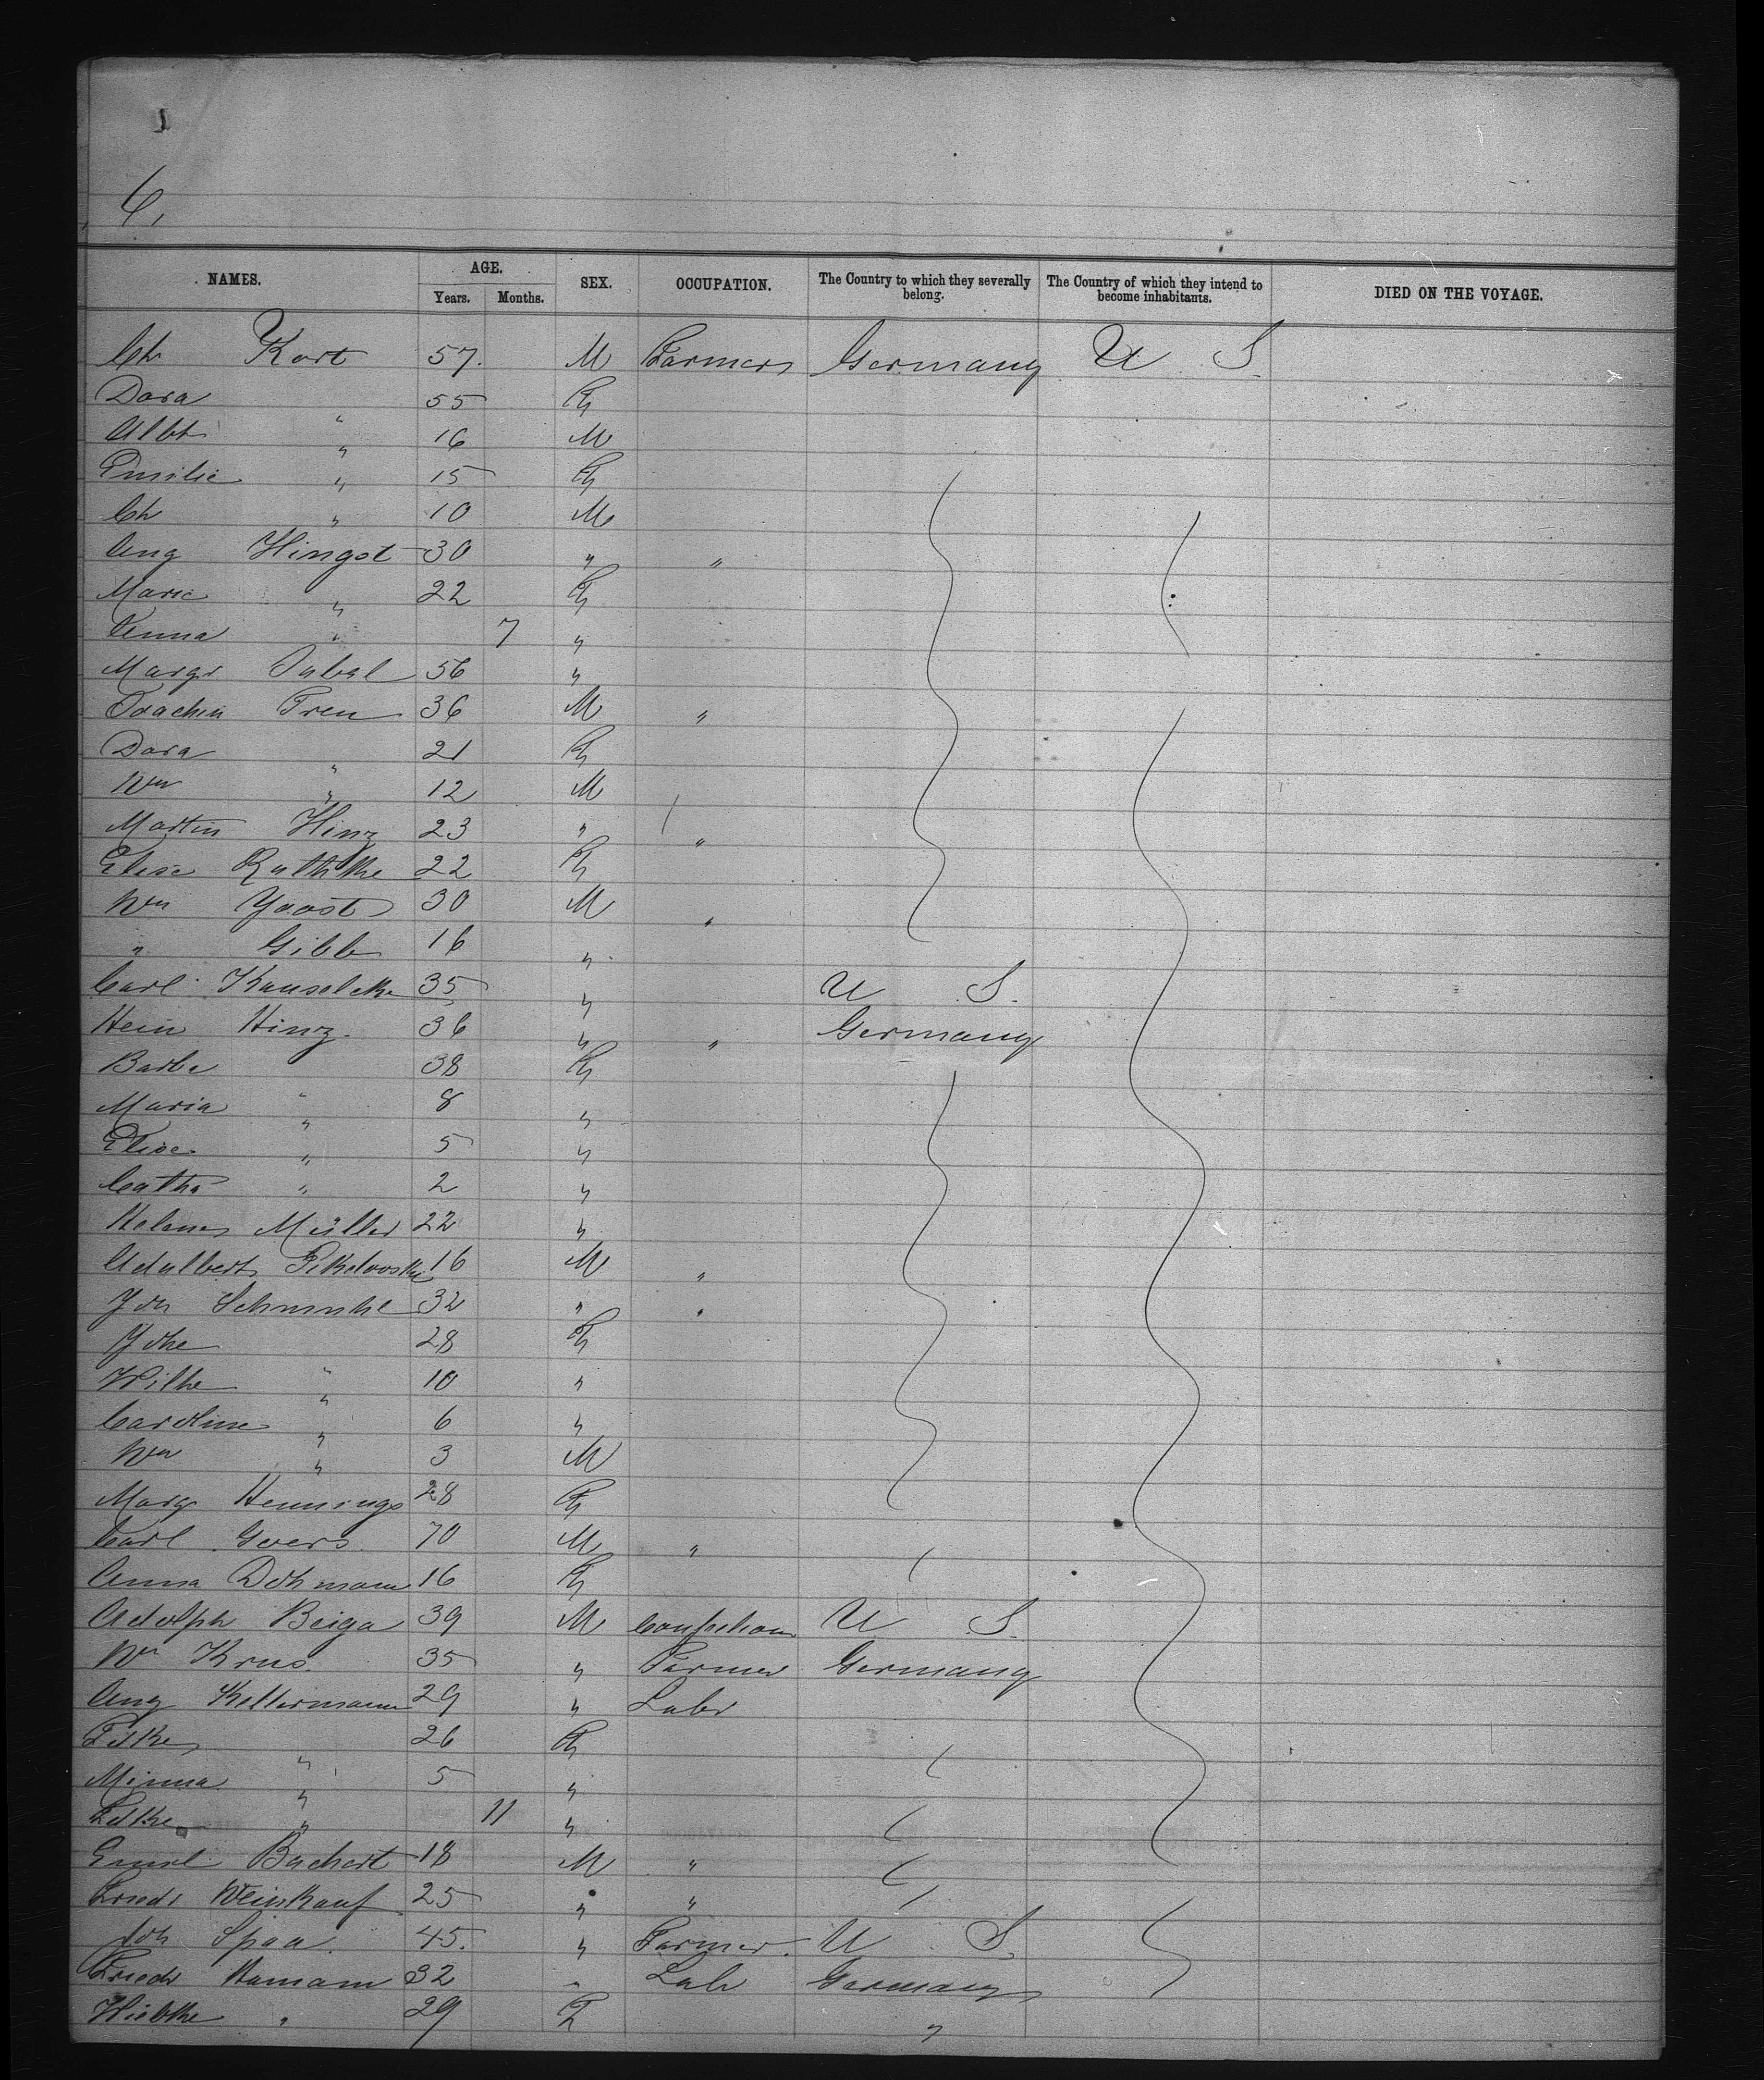 6,
NAMES. AGE. Years. Months. SEX. OCCUPATION. The Country to which they severally belong. The Country of which they intend to become inhabitants. DIED ON THE VOYAGE.
Ch Kort 57. M Farmer Germany U S.
Dora 55 F
Albt " 16 M
Emilie " 15 F
Ch " 10 M
Aug Hingst 30 " "
Marie " 22 F
Anna " 7 "
Margr 56 "
Joachim Treu 36 M "
Dora 21 F
Wm " 12 M
Martin Hinz 23 " "
Elise Rathke 22 F
Wm Yoost 30 M "
" Gibb 16 "
Carl 35 " U S.
Hein Hinz. 36 " " Germany
Barba 38 F
Maria " 8 "
Elise " 5 "
Catha " 2 "
Helene Müller 22 "
Adalbert 16 M "
Joh Schmuhl 32 " "
Johe 28 F
Wilhe " 10 "
Caroline " 6 "
Wm " 3 M
Marg Hennings 28 F
Carl Goers 70 M "
Anna Dohmann 16 F
Adolph Beiga 39 M U S.
Wm Krus. 35 " Farmer Germany
Aug Kellermann 29 " Labr
26 F
Minna " 5 "
" 11 "
Emil Bachert 18 M "
Friedr Weinkauf 25 " "
Joh Spaa. 45. " Farmer. U S.
Friedr Hamann 32 " Lab Germany
Wiebke " 29 F "